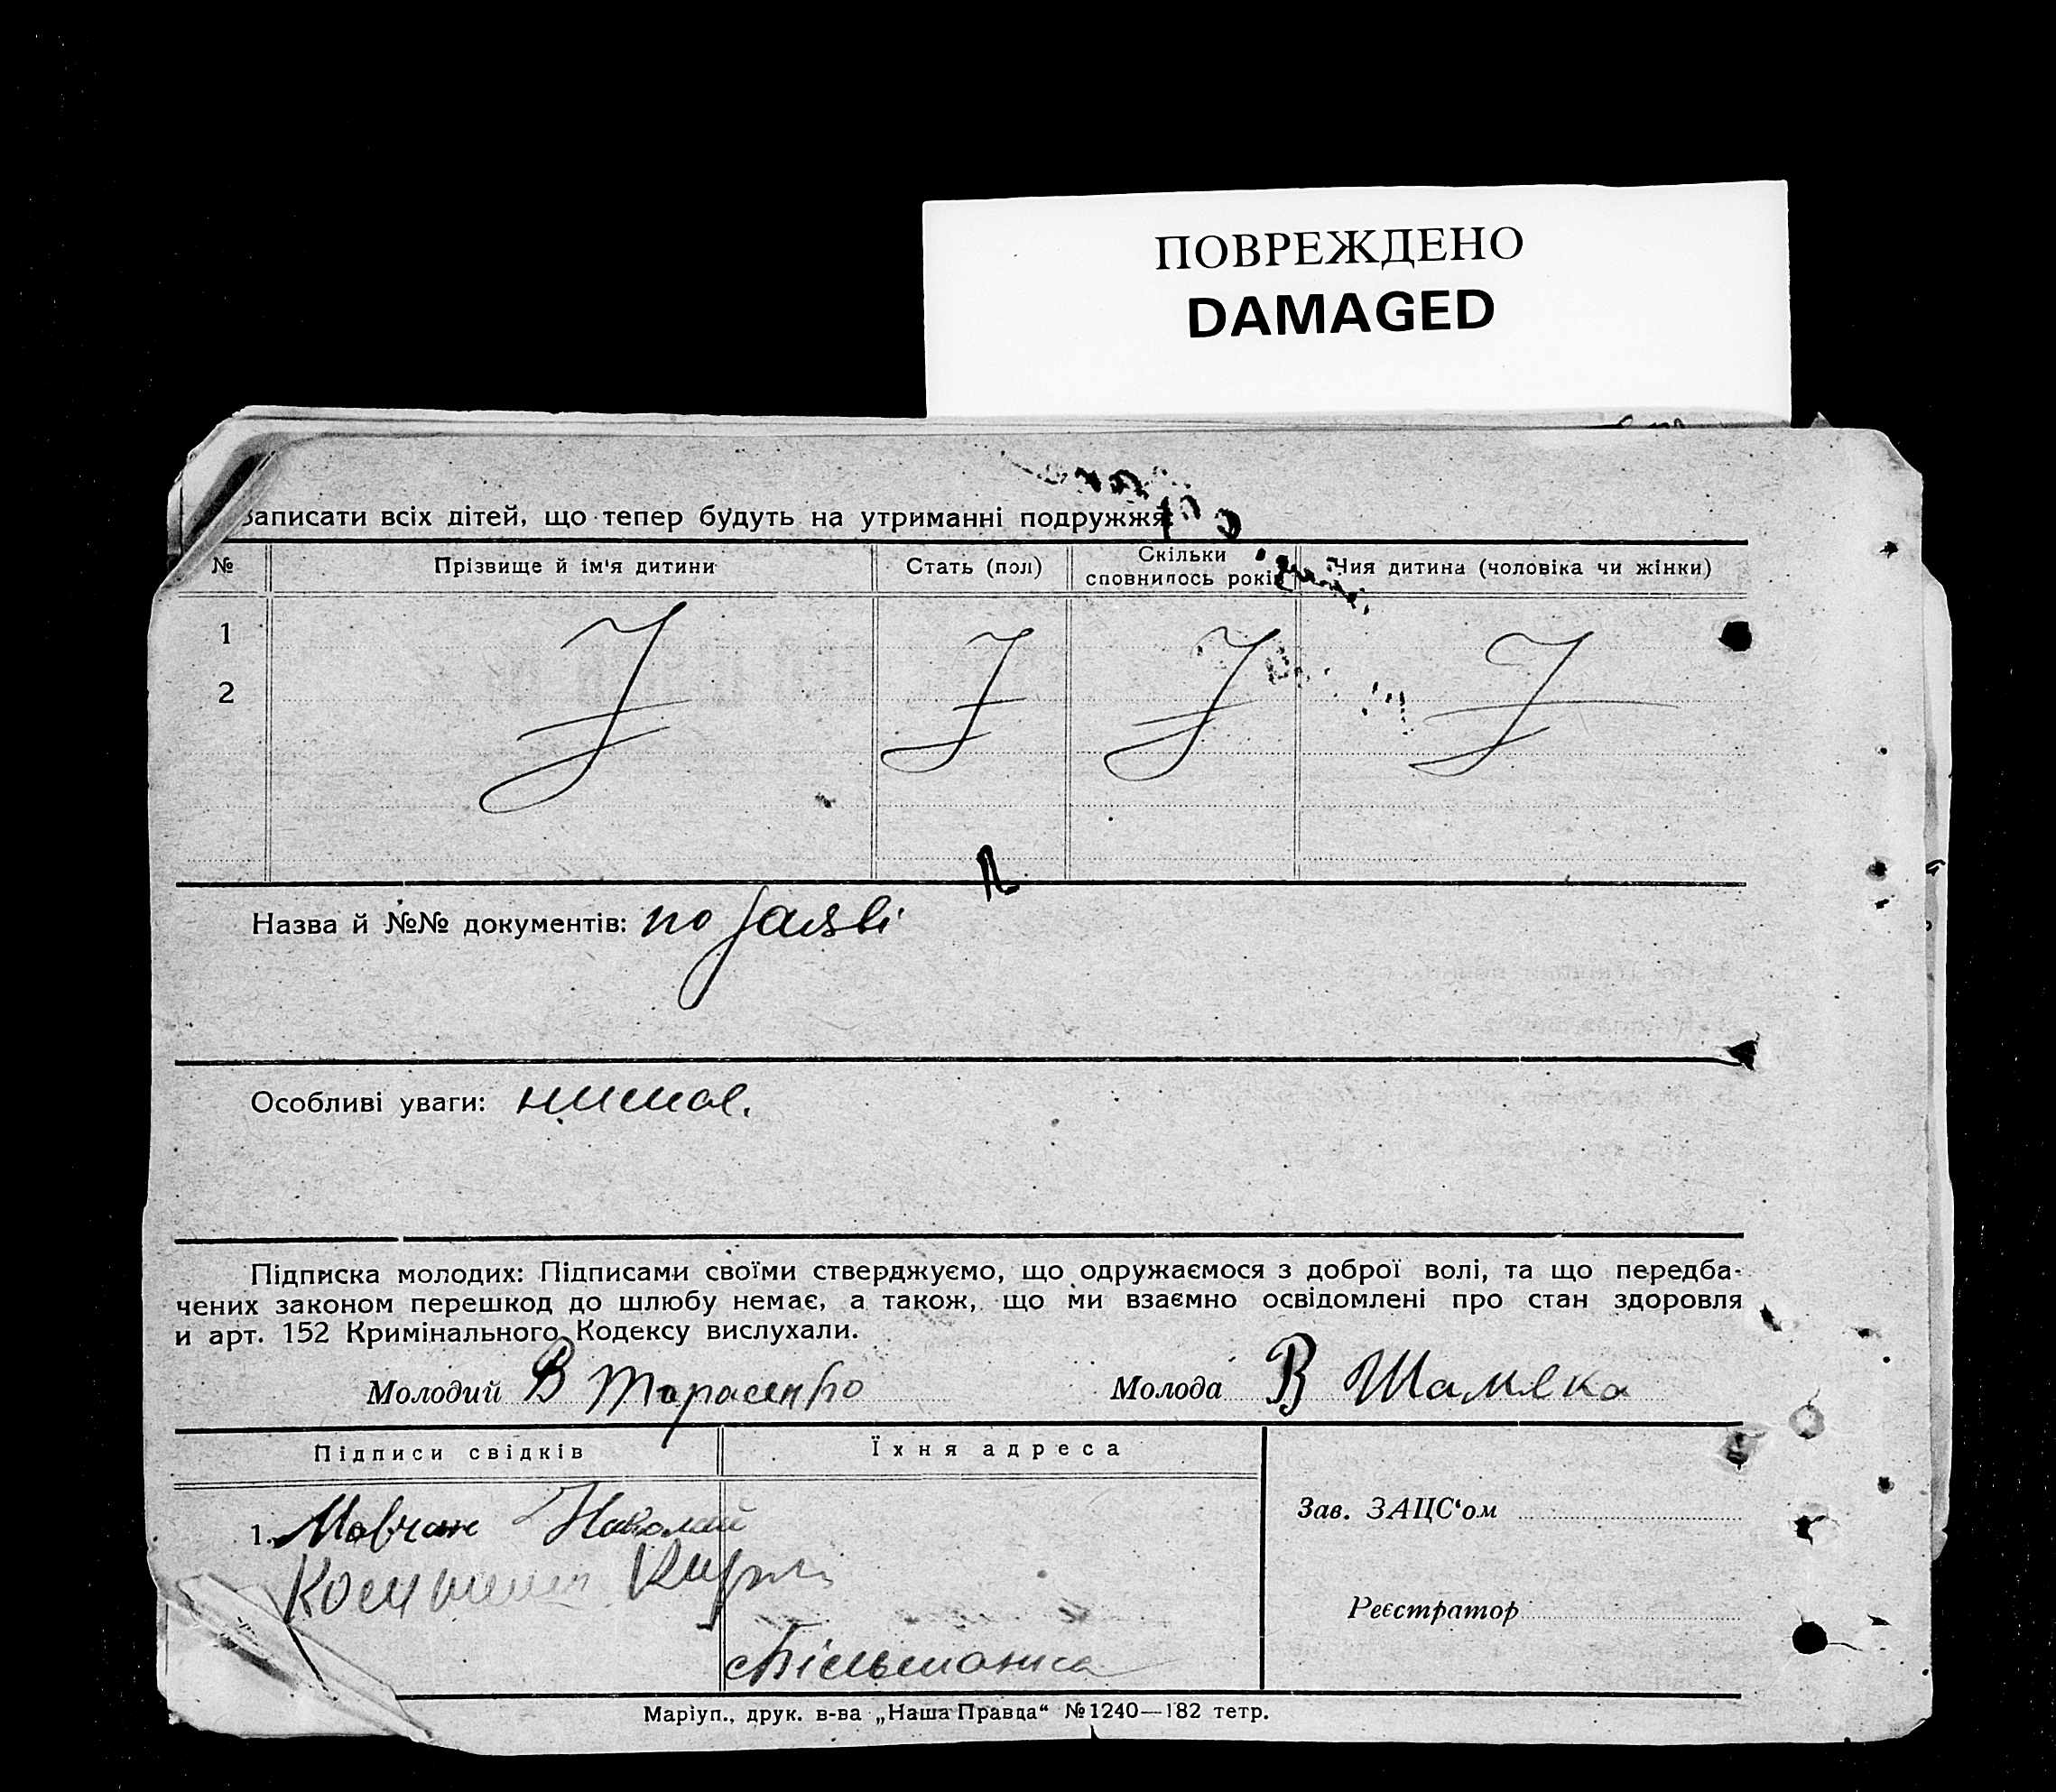 ПОВРЕЖДЕНО
DAMAGED
Записати всіх дітей, що тепер будуть на утриманні подружжя:
№ Прізвище й ім'я дитини Стать (пол) Скільки сповнилось років Чия дитина (чоловіка чи жінки)
1
2
Назва й №№ документів: по заяві
Особливі уваги: нимає.
Підписка молодих: Підписами своїми стверджуємо, що одружаємося з доброї волі, та що передба-
чених законом перешкод до шлюбу немає, а також, що ми взаємно освідомлені про стан здоровля
и арт. 152 Кримінального Кодексу вислухали.
Молодий В Тарасенко Молода В Шамека
Підписи свідків Їхня адреса
1. Мовчан Николай
Зав. ЗАЦС'ом
Реєстратор
Маріуп., друк. в-ва „Наша Правда“ №1240—182 тетр.